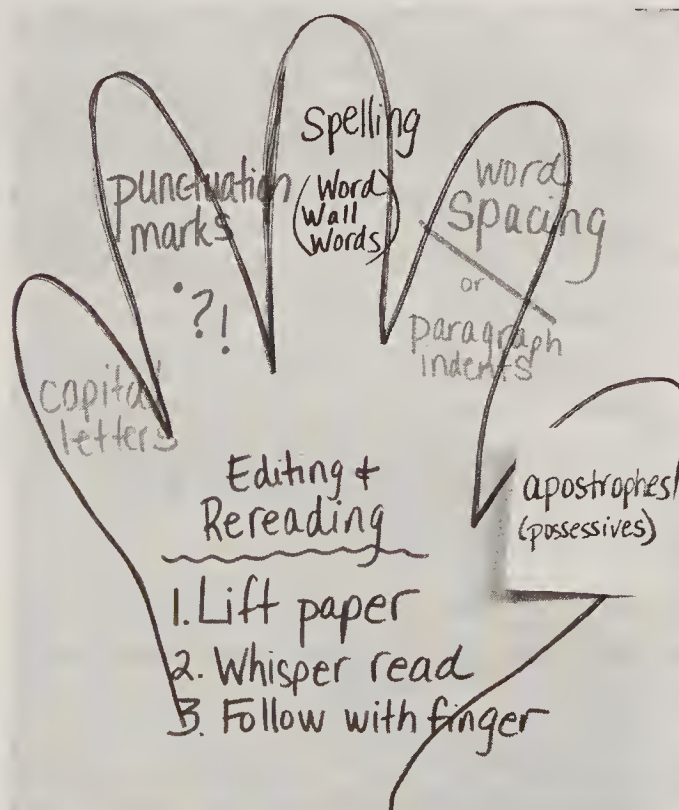 capital
letters
punctuation
marks
. ? !
Spelling
(Word
Wall
Words)
word
Spacing
or
paragraph
indents
apostrophes
(possessives)
Editing +
Rereading
1. Lift paper
2. Whisper read
3. Follow with finger